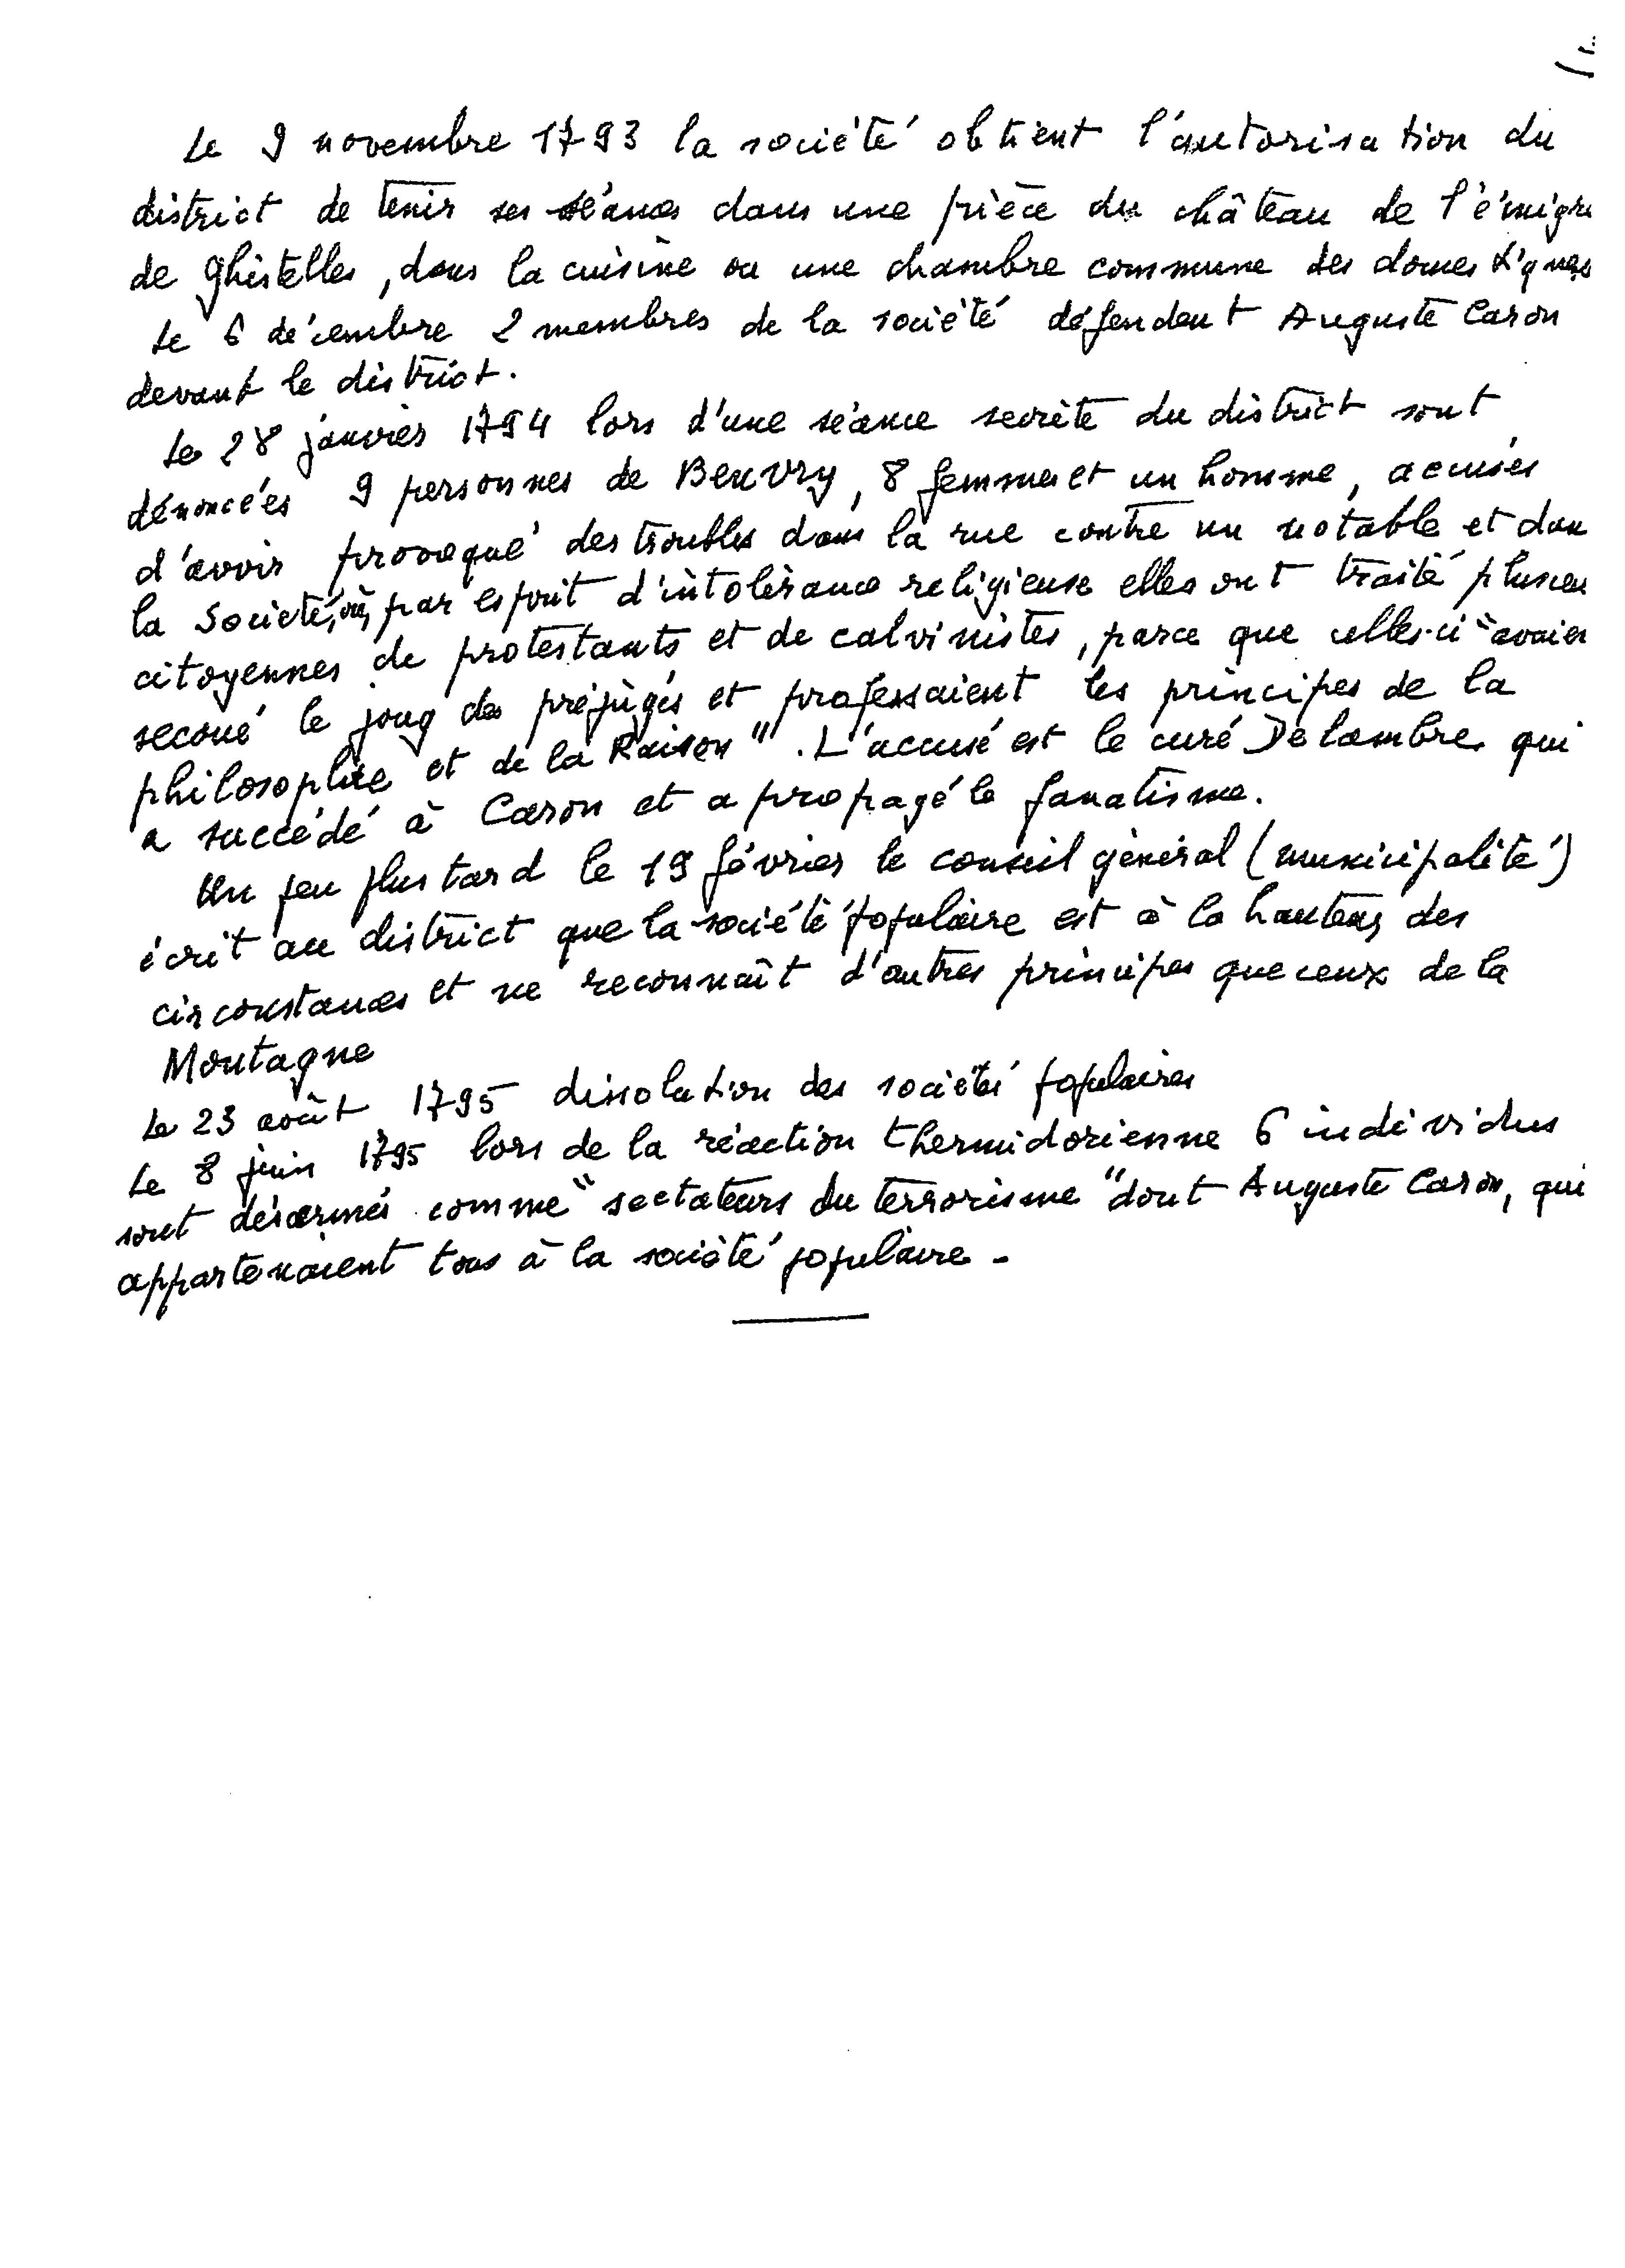 Le 9 novembre 1793 la société obtient l'autorisation du
district de tenir ses séances dans une pièce du château de l'émigré
de Ghistelles, dans la cuisine ou une chambre commune des domestiques
Le 6 décembre 2 membres de la société défendent Auguste Caron
devant le district.
Le 28 janvier 1794 lors d'une séance secrète du district sont
dénoncées 9 personnes de Beuvry, 8 femmes et un homme, accusés
d'avoir provoqué des troubles dans la rue contre un notable et dans
la Société, où, par esprit d'intolérance religieuse elles ont traité plusieu
citoyennes de protestants et de calvinistes, parce que celles-ci "avaien
secoué le joug des préjugés et professaient les principes de la
philosophie et de la Raison". L'accusé est le curé Delambre qui
a succédé à Caron et a propagé le fanatisme.
Un peu plus tard le 19 février le conseil général (municipalité)
écrit au district que la société populaire est à la hauteur des
circonstances et ne reconnaît d'autres principes que ceux de la
Montagne
Le 23 août 1795 dissolution des sociétés populaires
Le 8 juin 1795 lors de la réaction thermidorienne 6 individus
sont désarmés comme "sectateurs du terrorisme" dont Auguste Caron, qui
appartenaient tous à la société populaire -